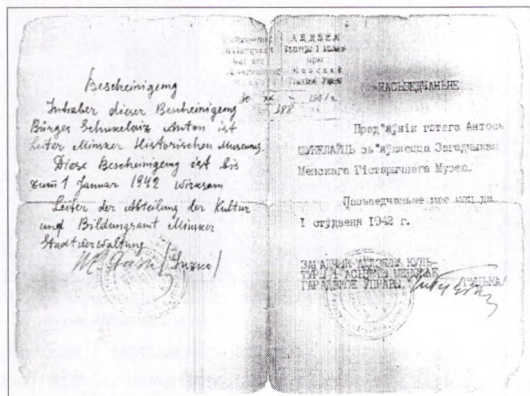 Bescheinigung
Inhaber dieser Bescheinigung
Bürger Schukeloiz Anton ist
Leiter Minsker Historischen Museums.
Diese Bescheinigung ist bis
zum 1 Januar 1942 wirksam
Leiter der Abteilung der Kultur
und Bildungsamt Minsker
Stadtverwaltung
АДДЗЕЛ
388
ПАСЬВЕДЧАНЬНЕ
Прод"яўнік гэтага Антось
ШУКЕЛАЙЦЬ зь"яўляецца Загадчыкам
Менскага Гістарычнага Музея.
Пасьведчаньне мае моц да
1 студзеня 1942 г.
ЗАГАДЧЫК АДДЗЕЛУ КУЛЬ-
ТУРЫ І АСЬВЕТЫ МЕНСКАЕ
ГАРАДЗКОЕ УПРАВЫ